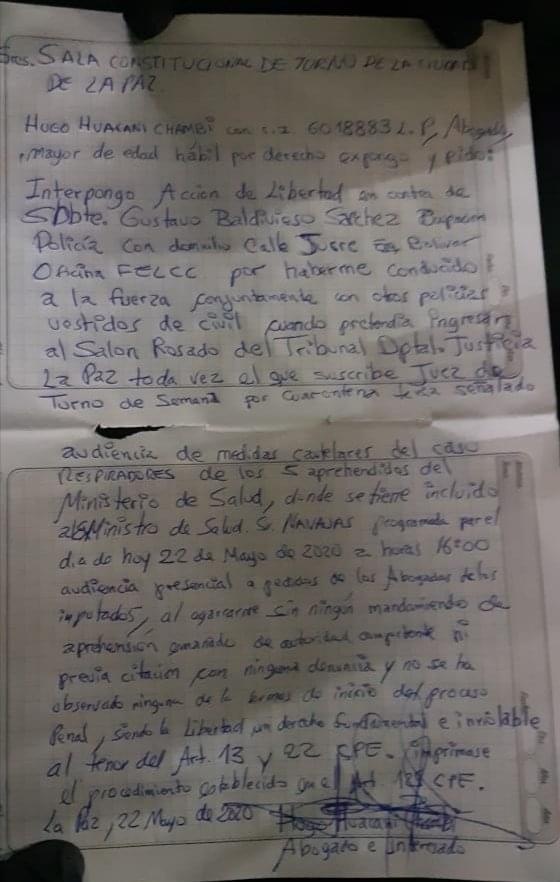 Sres. SALA CONSTITUCIONAL DE TURNO DE LA CIUDAD
DE LA PAZ
HUGO HUACANI CHAMBI con C.I. 6018883 L.P, Abogado,
mayor de edad hábil por derecho expongo y pido:
Interpongo Acción de Libertad en contra de
Sbbte. Gustavo Baldivieso Sanchez
Policia con domicilio Calle Sucre Bolivar
Oficina FELCC por haberme conducido
a la fuerza conjuntamente con otros policias
vestidos de civil cuando pretendia ingresar
al Salon Rosado del Tribunal Dptal. Justicia
La Paz toda vez el que suscribe Juez de
Turno de Semana por cuarentena señalado
audiencia de medidas cautelares del caso
RESPIRADORES de los 5 aprehendidos del
Ministerio de Salud, donde se tiene incluido
al Ministro de Salud. Sr. NAVAJAS programada para el
dia de hoy 22 de Mayo de 2020 a horas 16:00
audiencia presencial a pedidos de los Abogados de los
imputados, al agarrarme sin ningún mandamiento de
aprehensión emanado de autoridad competente ni
previa citación con ninguna denuncia y no se ha
observado ninguna de las formas de inicio del proceso
Penal, siendo la Libertad un derecho fundamental e inviolable
al tenor del Art. 13 y 22 CPE. imprimase
el procedimiento establecido en el Art. 125 CPE.
La Paz, 22 Mayo de 2020 Hugo Huacani
Abogado e Interesado